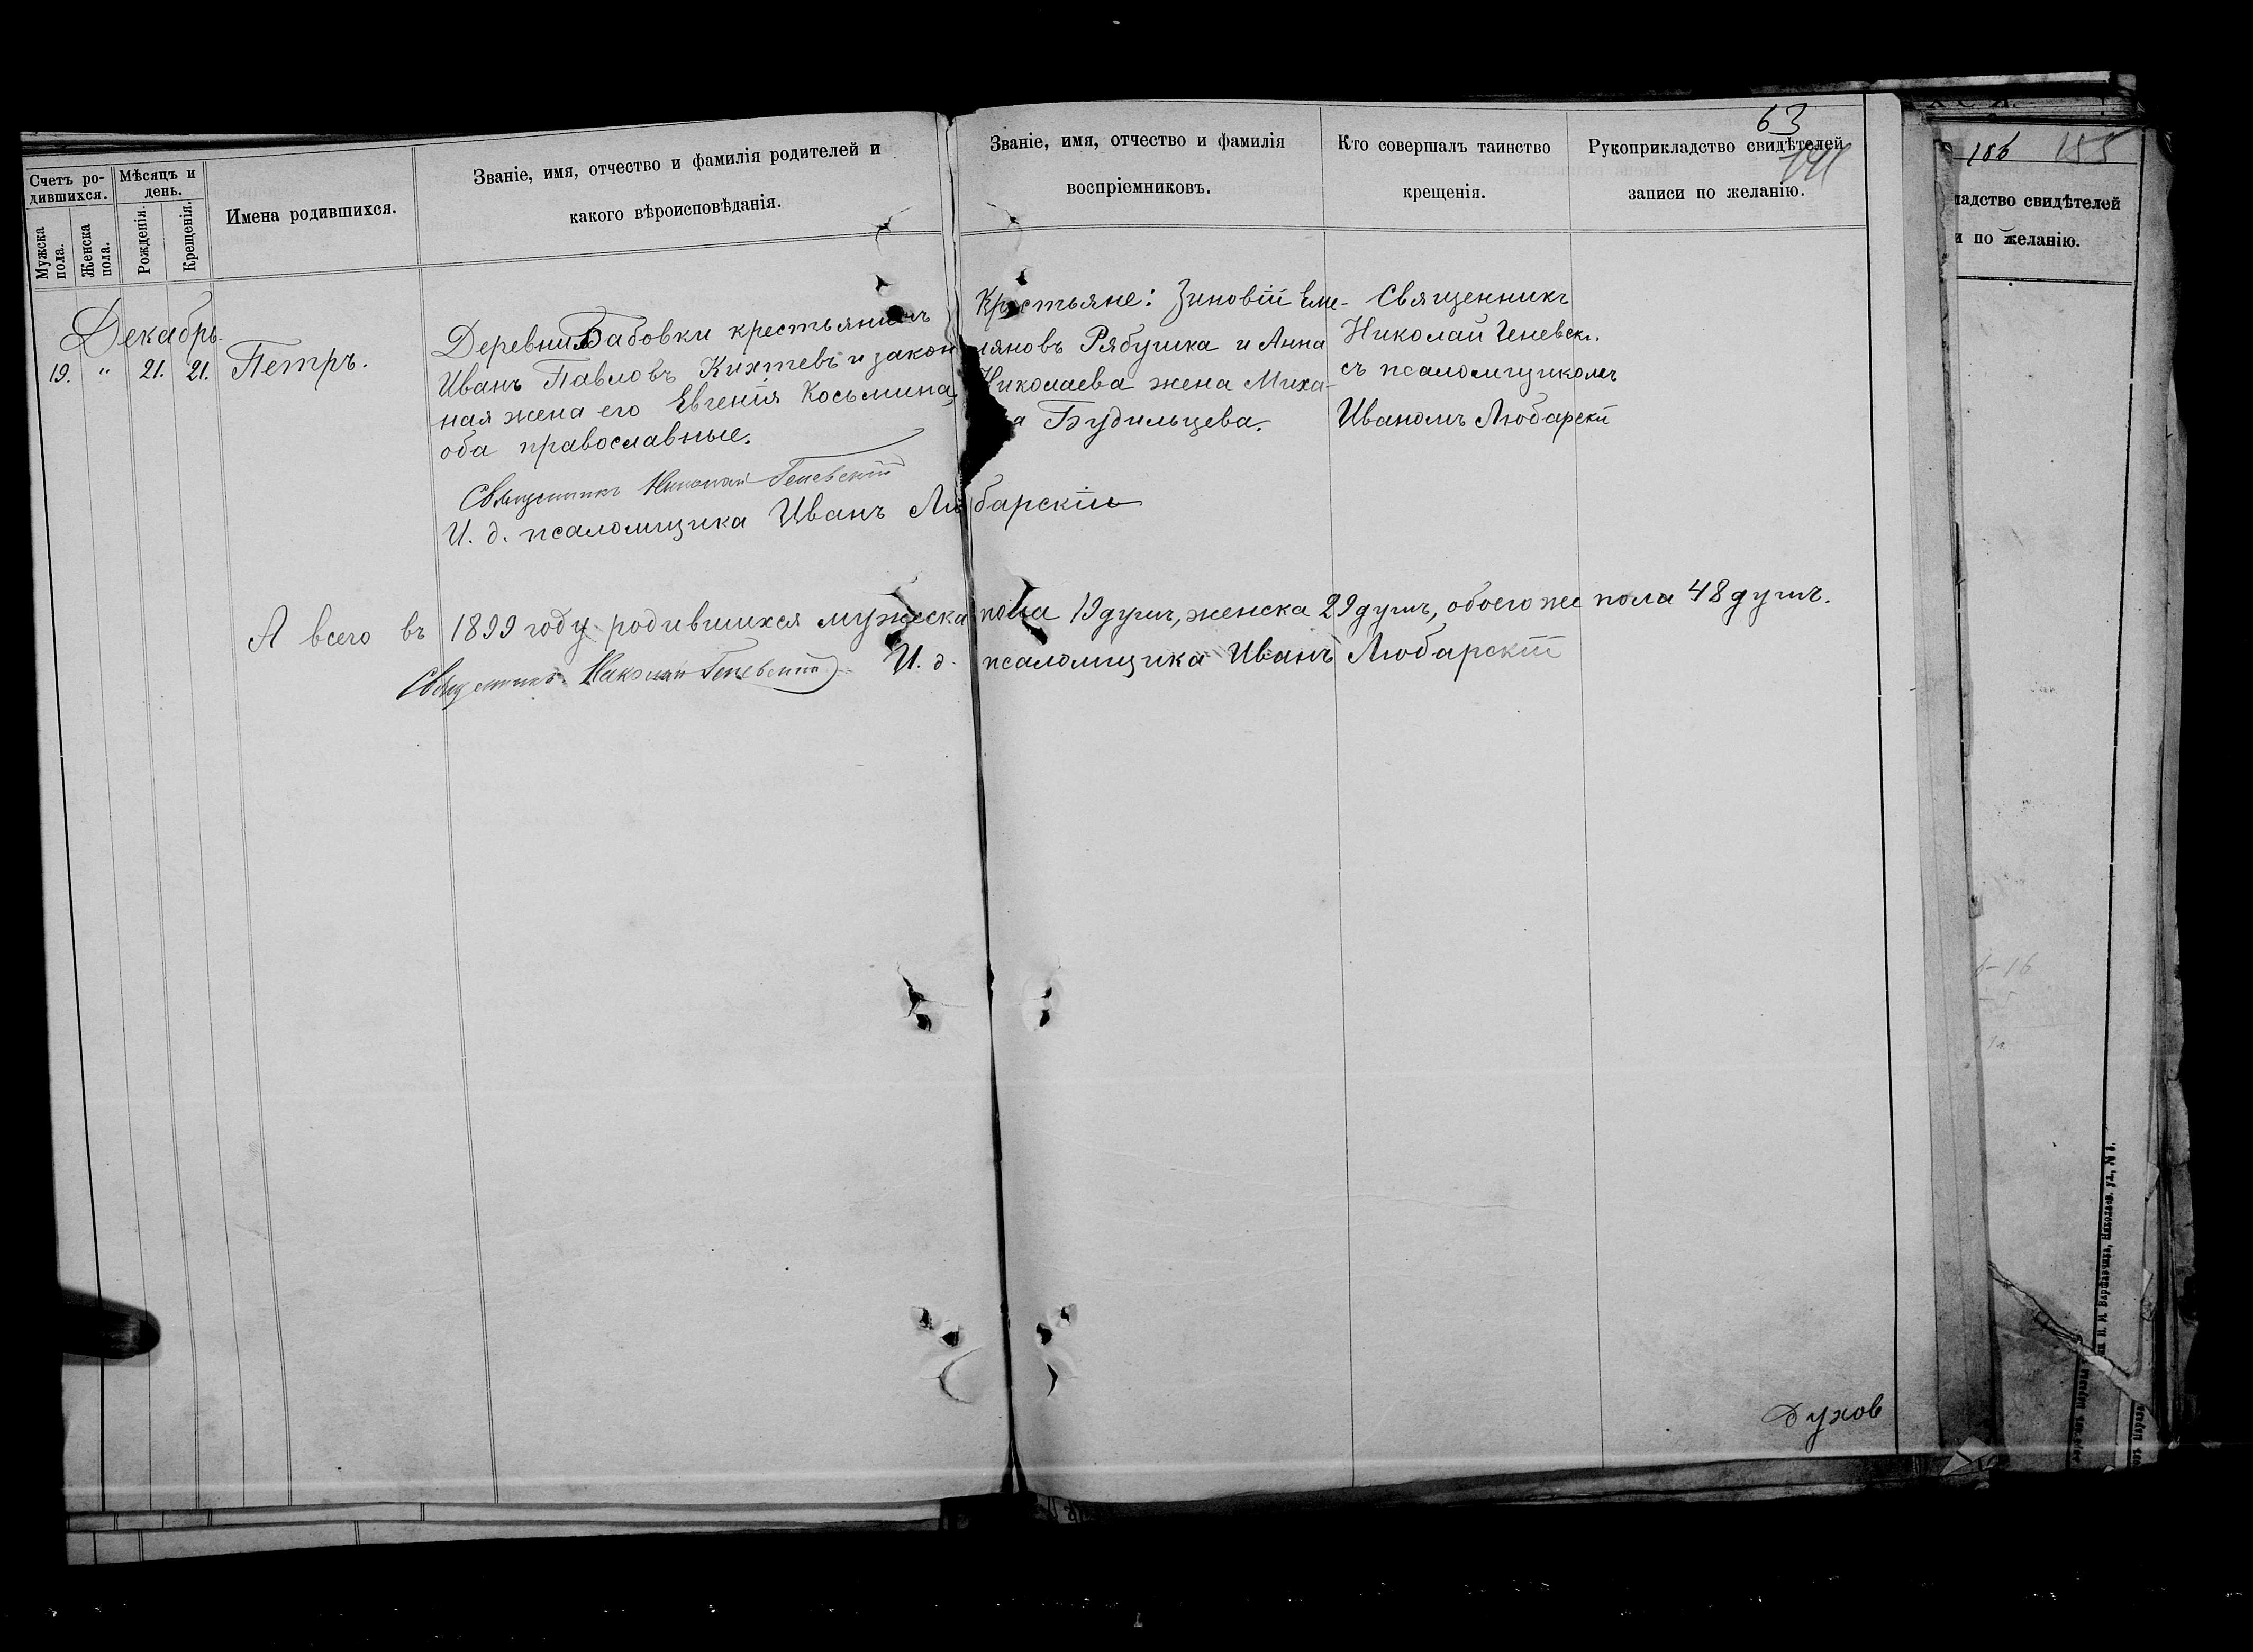 63
Счетъ ро-
дившихся.
Мужска
пола.
Женска
пола.
Мѣсяцъ и
день.
Рожденія.
Крещенія.
Имена родившихся.
Званіе, имя, отчество и фамилія родителей и
какого вѣроисповѣданія.
Званіе, имя, отчество и фамилія
воспріемниковъ.
Кто совершалъ таинство
крещенія.
Рукоприкладство свидѣтелей
записи по желанію.
Декабрь.
19. " 21. 21. Петръ.
Деревни Бабовки крестьянинъ
Иванъ Павловъ Кихтевъ и закон
ная жена его Евгенія Косьмина,
оба православные.
Священникъ Николай Геневскій
И. д. псаломщика Иванъ Любарскій
Крестьяне: Зиновій Еме-
ляновъ Рябушка и Анна
Николаева жена Миха-
Будильцева.
Священникъ
Николай Геневск.
съ псаломщикомъ
Иваномъ Любарскі
А всего въ 1899 году родившихся мужеска пола 19 душъ, женска 29 душъ, обоего же пола 48 душъ.
Священникъ Николай Геневскій И. д. псаломщика Иванъ Любарскій
Духов
186 185
ладство свидѣтелей
и по желанію.